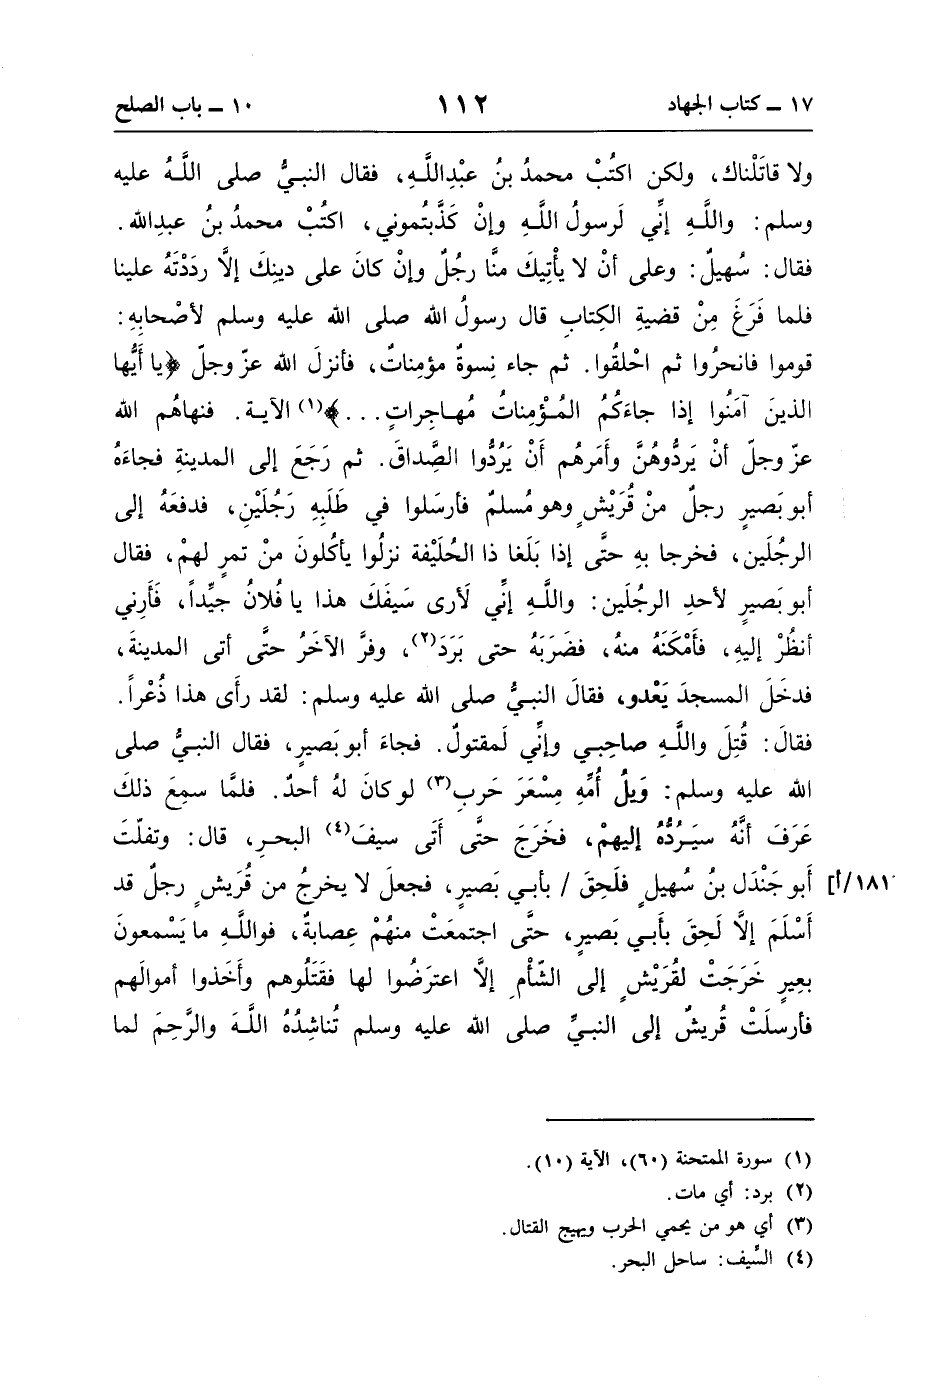 ١٧ ـ كتاب الجهاد ١١٢ ١٠ ـ باب الصلح
ولا قاتَلْناك، ولكن اكتُبْ محمدُ بنُ عبْدِاللَّهِ، فقال النبيُّ صلى اللَّهُ عليه
وسلم: واللَّهِ إنِّي لَرسولُ اللَّهِ وإنْ كَذَّبتُموني، اكتُبْ محمدُ بنُ عبدِالله.
فقال: سُهيلٌ: وعلى أنْ لا يأْتيكَ منَّا رجُلٌ وإنْ كانَ على دينِكَ إلَّا ردَدْتَهُ علينا
فلما فَرَغَ مِنْ قضيةِ الكتابِ قال رسولُ الله صلى الله عليه وسلم لأصْحابِهِ:
قوموا فانحرُوا ثم احْلقُوا. ثم جاء نِسوةٌ مؤمناتٌ، فأنزلَ الله عزّ وجلّ ﴿يا أيُّها
الذينَ آمَنُوا إذا جاءَكُمُ المُؤْمِناتُ مُهاجِراتٍ...﴾(١) الآية. فنهاهُم الله
عزّ وجلّ أنْ يَردُّوهُنَّ وأَمَرهُم أَنْ يَرُدُّوا الصَّداقَ. ثم رَجَعَ إلى المدينةِ فجاءَهُ
أبو بَصيرٍ رجلٌ منْ قُرَيْشٍ وهو مُسلمٌ فأرسَلوا في طَلَبِهِ رَجُلَيْنِ، فدفعَهُ إلى
الرجُلَين، فخرجا بهِ حتَّى إذا بَلَغا ذا الحُلَيْفة نزلُوا يأكُلونَ منْ تمرٍ لهمْ، فقال
أبو بَصيرٍ لأحدِ الرجُلَين: واللَّهِ إنِّي لَأرى سَيفَكَ هذا يا فُلانُ جيِّداً، فَأَرِني
أنظُرْ إليهِ، فَأمْكَنَهُ منهُ، فضَرَبَهُ حتى بَرَدَ(٢)، وفرَّ الآخَرُ حتَّى أتى المدينةَ،
فدخَلَ المسجدَ يَعْدو، فقالَ النبيُّ صلى الله عليه وسلم: لقد رأَى هذا ذُعْراً.
فقالَ: قُتِلَ واللَّهِ صاحِبي وإنِّي لَمقتولٌ. فجاءَ أبو بَصيرٍ، فقال النبيُّ صلى
الله عليه وسلم: وَيلُ أُمِّهِ مِسْعَرَ حَربٍ(٣) لو كانَ لهُ أحدٌ. فلمَّا سمِعَ ذلكَ
عَرَفَ أنَّهُ سيَردُّهُ إليهِمْ، فخَرَجَ حتَّى أَتَى سيفَ(٤) البحرِ، قال: وتفلّتَ
١٨١/أ] أبو جَنْدَل بنُ سُهيلٍ فلَحِقَ / بأبي بَصيرٍ، فجعلَ لا يخرجُ من قُريشٍ رجلٌ قد
أَسْلَمَ إلَّا لَحِقَ بأَبي بَصيرٍ، حتَّى اجتمعَتْ منهُمْ عِصابةٌ، فواللَّهِ ما يَسْمعونَ
بعِيرٍ خَرَجَتْ لقُرَيْشٍ إلى الشّأْمِ إلَّا اعترَضُوا لها فقَتَلُوهم وأَخَذوا أموالَهم
فأرسلَتْ قُريشٌ إلى النبيِّ صلى الله عليه وسلم تُناشِدُهُ اللَّهَ والرَّحِمَ لما
(١) سورة الممتحنة (٦٠)، الآية (١٠).
(٢) برد: أي مات.
(٣) أي هو من يحمي الحرب ويهيج القتال.
(٤) السِّيف: ساحل البحر.